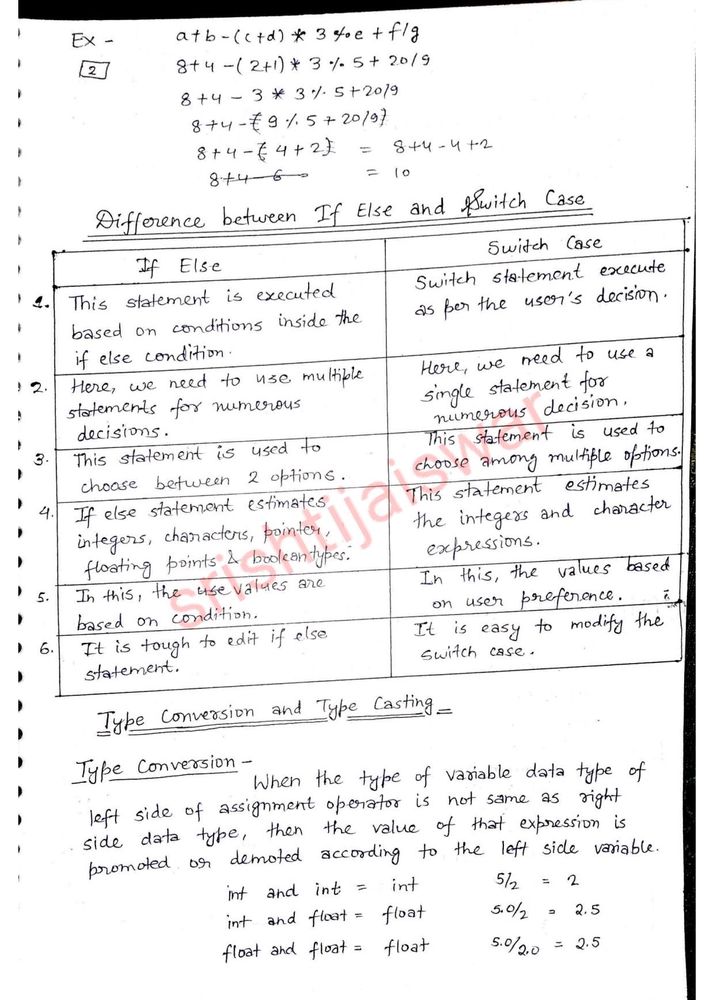 Ex - a+b-(c+d) * 3 % e + f/g
2 8+4-(2+1)* 3 % 5 + 20/9
8+4 - 3 * 3 % 5+20/9
8+4-{9 % 5 + 20/9}
8+4-{4+2} = 8+4-4+2
8+4-6 = 10
Difference between If Else and Switch Case
If Else
Switch Case
1. This statement is executed
based on conditions inside the
if else condition.
Switch statement execute
as per the user's decision.
2. Here, we need to use multiple
statements for numerous
decisions.
Here, we need to use a
single statement for
numerous decision.
3. This statement is used to
choose between 2 options.
This statement is used to
choose among multiple options.
4. If else statement estimates
integers, characters, pointer,
floating points & boolean types.
This statement estimates
the integers and character
expressions.
5. In this, the use values are
based on condition.
In this, the values based
on user preference.
6. It is tough to edit if else
statement.
It is easy to modify the
switch case.
srishtijaiswar
Type Conversion and Type Casting
Type Conversion -
When the type of variable data type of
left side of assignment operator is not same as right
side data type, then the value of that expression is
promoted or demoted according to the left side variable.
int and int = int 5/2 = 2
int and float = float 5.0/2 = 2.5
float and float = float 5.0/2.0 = 2.5